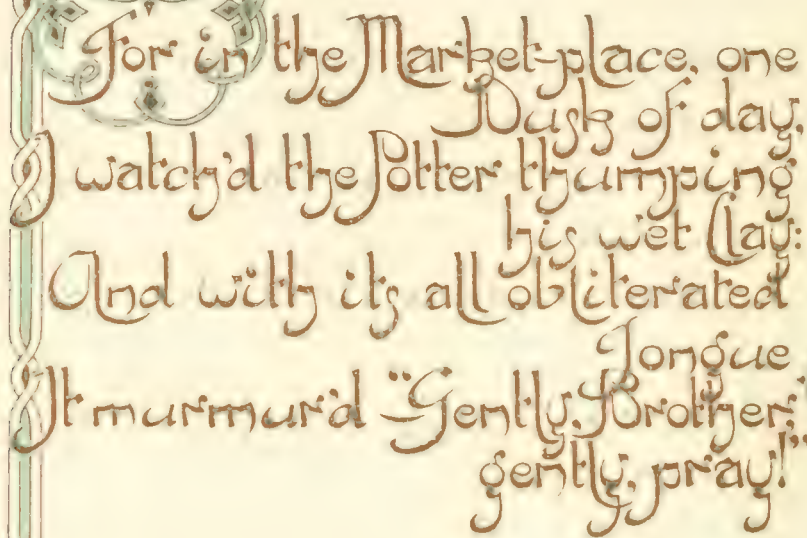 For in the Market-place, one
Dusk of day,
I watch'd the Potter thumping
his wet Clay:
And with its all obliterated
Tongue
It murmur'd—"Gently, Brother,
gently, pray!"